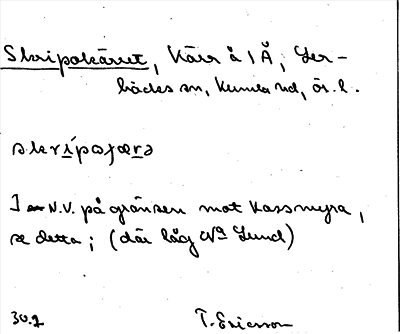 Skripakärret, Kärr å 1 Å, Ler-
bäcks sn, Kumla hd, ör. l.
skrípaʃæra
I N.V. på gränsen mot Kassmyra,
se detta; (där låg Na Lund)
30.7 T. Ericsson